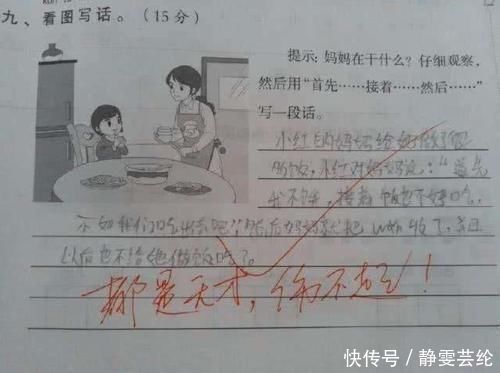 九、看图写话。(15分)
提示:妈妈在干什么?仔细观察,
然后用“首先……接着……然后……”
写一段话。
小红的妈妈给她做好很
多饭,小红对妈妈说:“首先
我不饿,接着饭也不好吃,
不如我们吃 吧”然后妈妈就把 收了,并且
以后也不给她做饭吃了。
都是天才,伤不起!
快传号/静雯芸纶